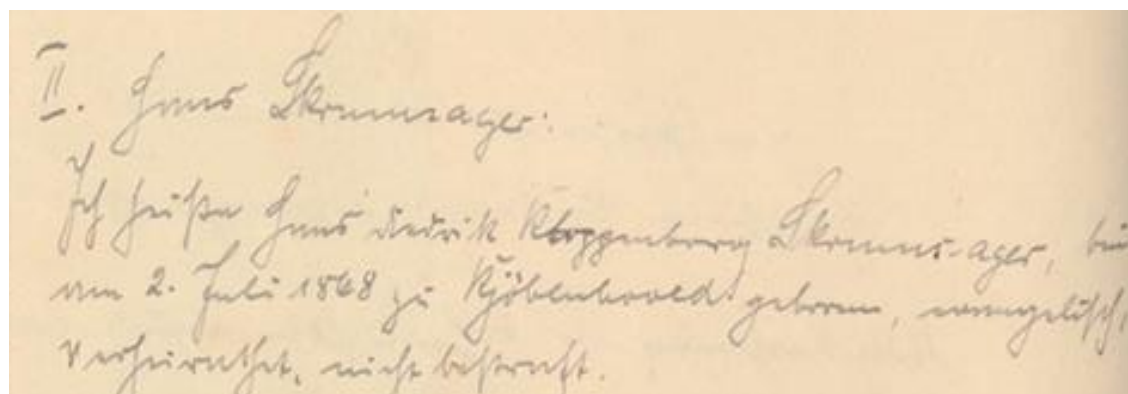 II. Hans Skrumsager:
Ich heiße Hans Diedrik Kloppenborg Skrumsager, bin
am 2. Juli 1868 zu Kjöbenhoved geboren, evangelisch,
verheirathet, nicht bestraft.